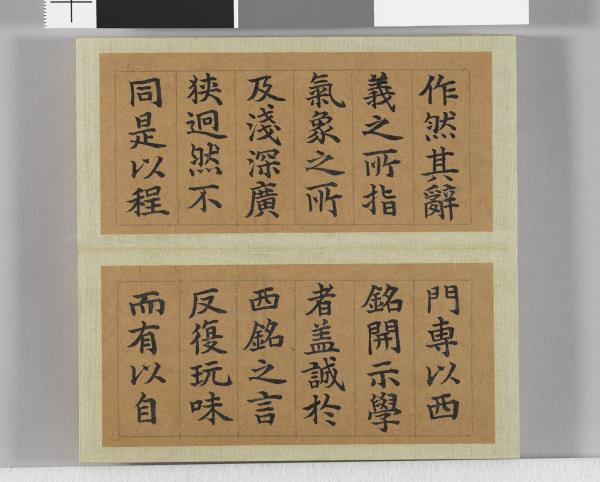 作然其辭
義之所指
氣象之所
及淺深廣
狹迥然不
同是以程
門專以西
銘開示學
者盖誠於
西銘之言
反復玩味
而有以自